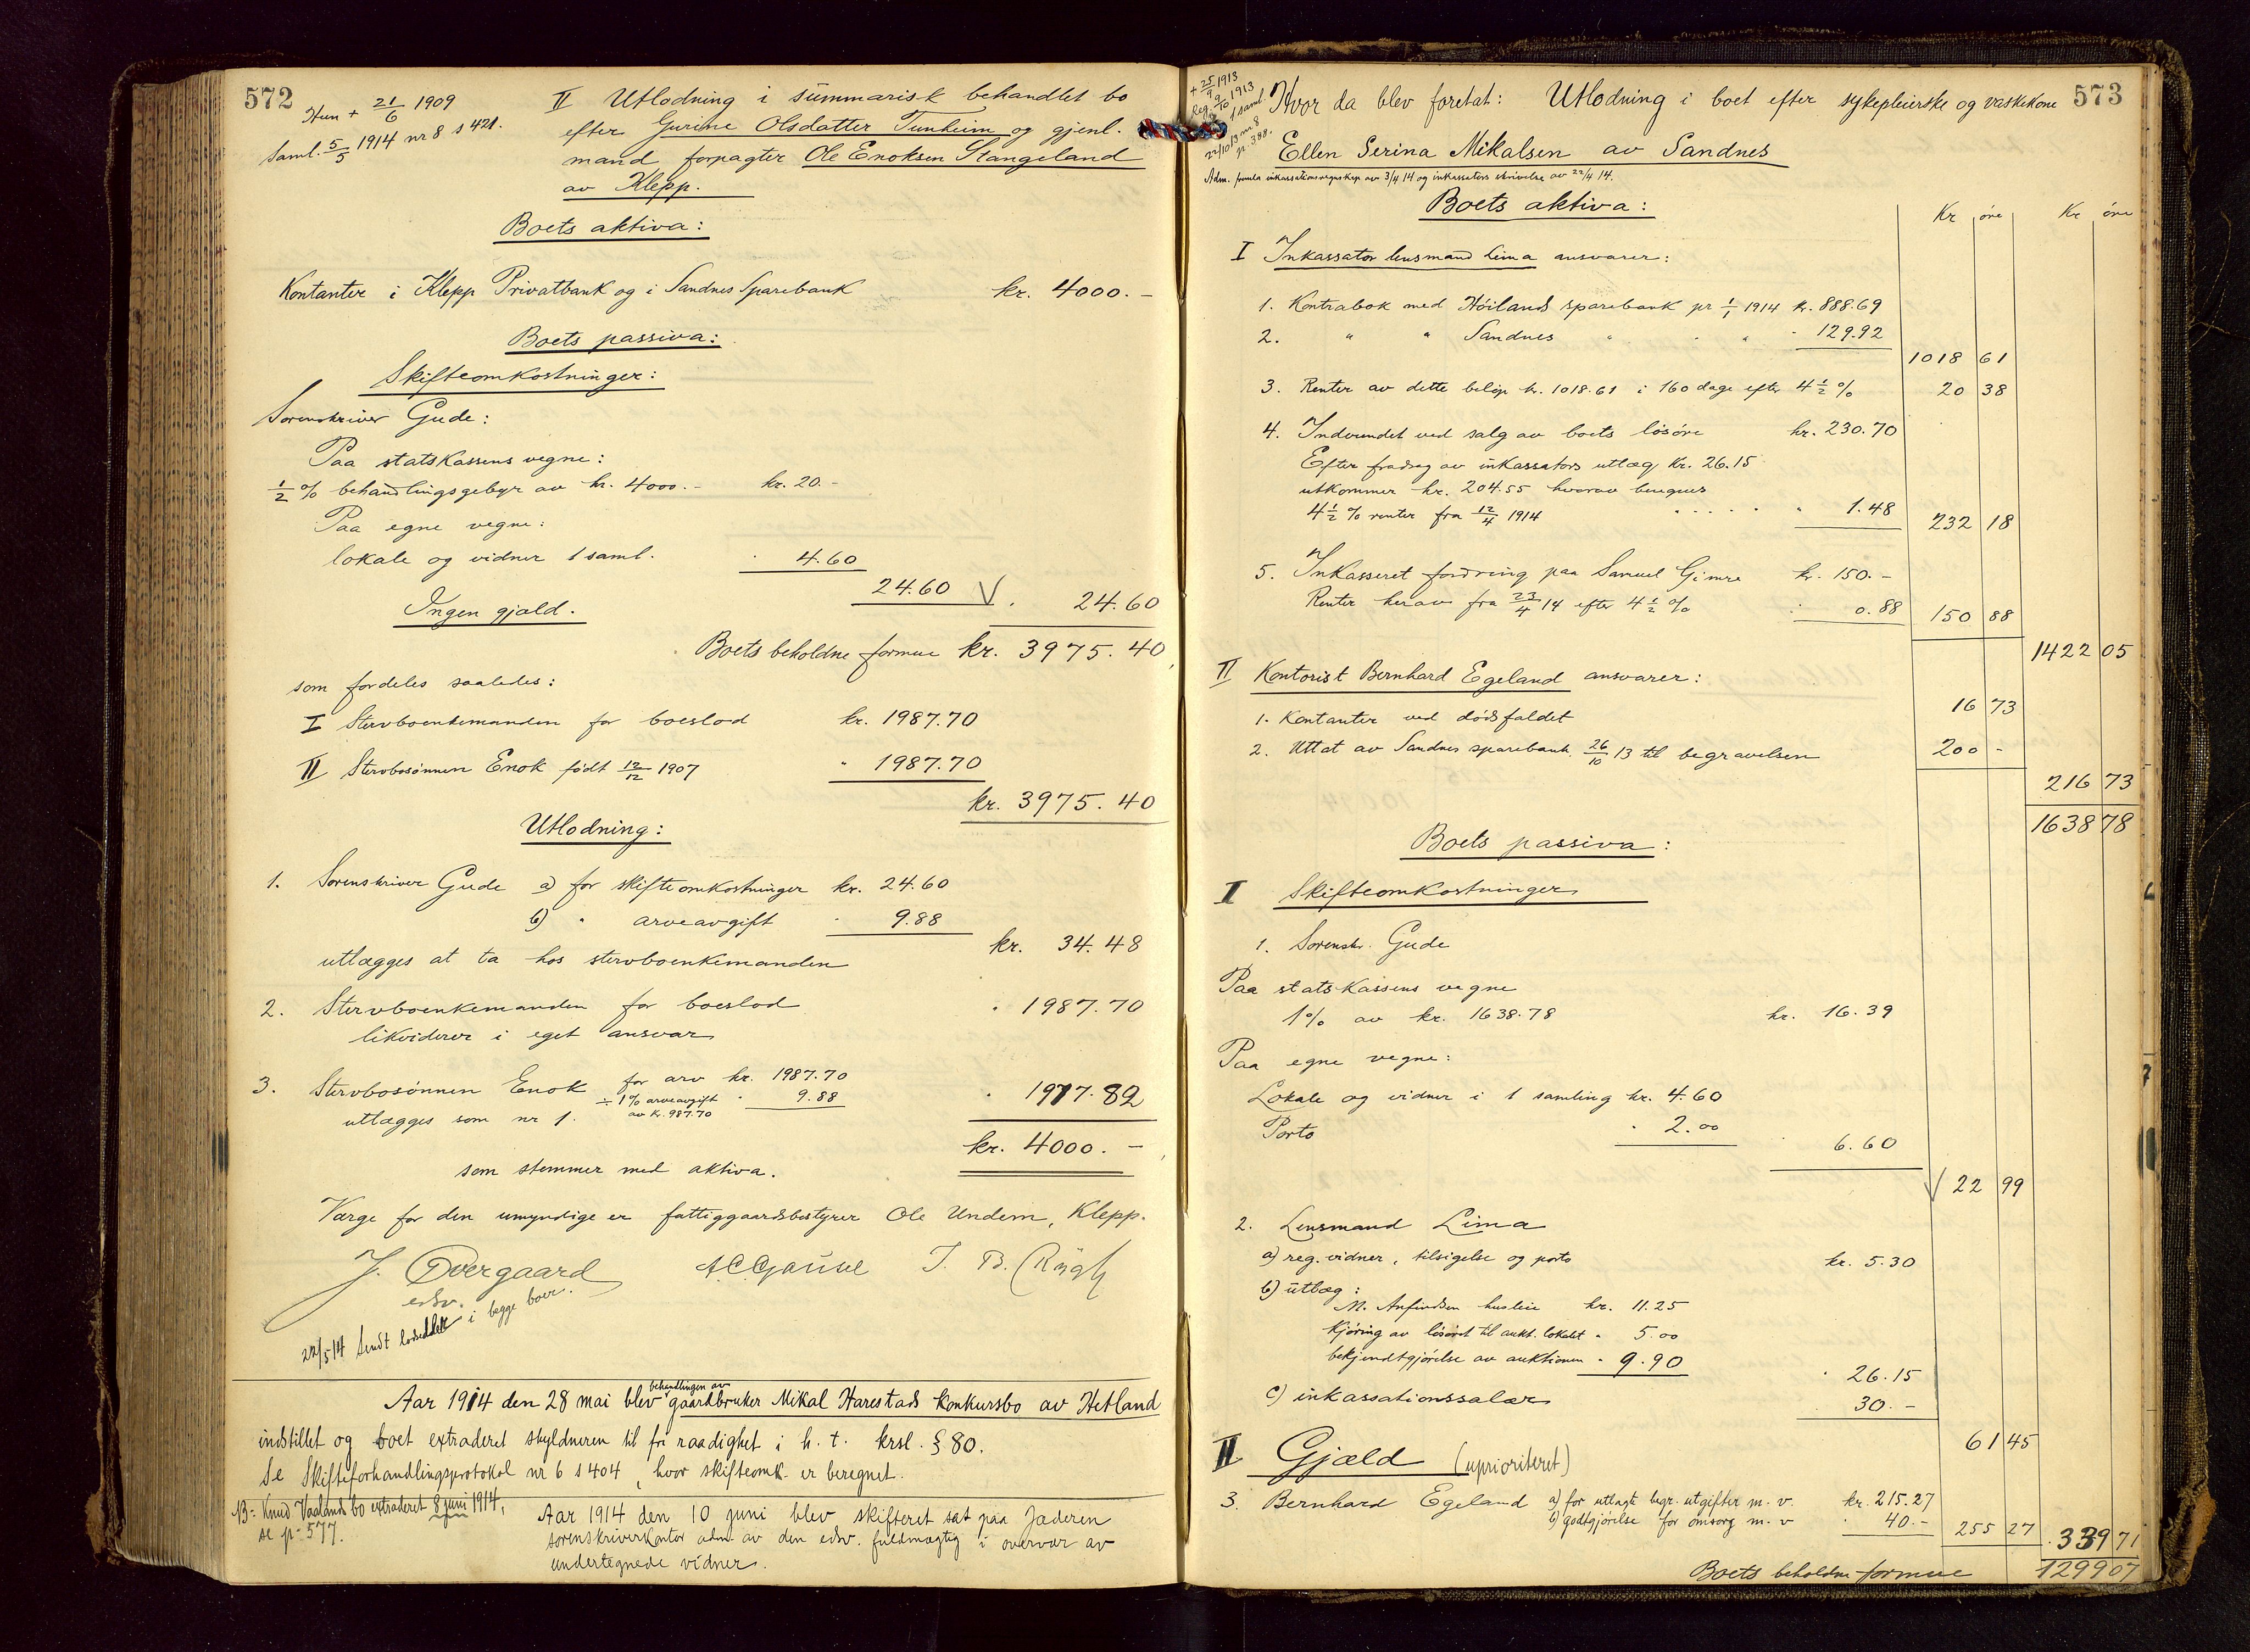 572
Hun + 21/6 1909
Saml. 5/5 1914 nr 8 s 421.
II Utlodning i summarisk behandlet bo
efter Gurine Olsdatter Tunheim og gjenl.
mand forpagter Ole Enoksen Stangeland
av Klepp.
Boets aktiva:
Kontanter i Klepp Privatbank og i Sandnes Sparebank kr. 4000.-
Boets passiva:
Skifteomkostninger:
Sorenskriver Gude:
Paa statskassens vegne:
1/2 % behandlingsgebyr av kr. 4000.- kr. 20.-
Paa egne vegne:
lokale og vidner 1 saml. " 4.60
24.60 √ " 24.60
Ingen gjæld.
Boets beholdne formue kr. 3975.40
som fordeles saaledes:
I Stervboenkemanden for boeslod kr. 1987.70
II Stervbosønnen Enok født 12/12 1907 " 1987.70
kr. 3975.40
Utlodning:
1. Sorenskriver Gude a) for skifteomkostninger kr. 24.60
b) " arveavgift " 9.88
utlægges at ta hos stervboenkemanden kr. 34.48
2. Stervboenkemanden for boeslod " 1987.70
likviderer i eget ansvar
3. Stervbosønnen Enok for arv kr. 1987.70
÷ 1% arveavgift " 9.88 " 1977.82
av kr. 987.70
utlægges som nr 1.
kr. 4000.-
som stemmer med aktiva.
Værge for den umyndige er fattiggaardsbestyrer Ole Undem, Klepp.
J. Overgaard
edsv.
22/5 14 Sendt lodseddeler i begge boer.
Aar 1914 den 28 mai blev behandlingen av gaardbruker Mikal Harestads konkursbo av Hetland
indstillet og boet extraderet skyldneren til fri raadighet i h. t. krsl. § 80.
Se Skifteforhandlingsprotokol nr 6 s 404, hvor skifteomk. er beregnet.
NB- Knud Vaalands bo extraderet 8 juni 1914,
se p- 577.
Aar 1914 den 10 juni blev skifteret sat paa Jæderen
sorenskriverkontor adm av den edsv. fuldmægtig i overvær av
undertegnede vidner.
573
+ 25/9 1913
Reg. 9/10 1913
1 saml
22/10 13 nr. 8
p. 388.
Hvor da blev foretat: Utlodning i boet efter sykepleierske og vaskekone
Ellen Serina Mikalsen av Sandnes
Adm. fremla inkassationsregnskap av 3/4 14 og inkassators skrivelse av 22/4 14.
Boets aktiva:
Kr øre Kr øre
I Inkassator lensmand Lima ansvarer:
1. Kontrabok med Høilands sparebank pr 1/1 1914 kr. 888.69
2. " " Sandnes " " " " 129.92
1018 61
3. Renter av dette beløp kr. 1018.61 i 160 dage efter 4 1/2 % 20 38
4. Indvundet ved salg av boets løsøre kr. 230.70
Efter fradrag av inkassators utlæg kr. 26.15
utkommer kr. 204.55 hvorav beregnes
4 1/2 % renter fra 12/4 1914 " 1.48 232 18
5. Inkasseret fordring paa Samuel Gimre kr. 150.-
Renter herav fra 23/4 14 efter 4 1/2 % " 0.88 150 88
1422 05
II Kontorist Bernhard Egeland ansvarer:
1. Kontanter ved dødsfaldet 16 73
2. Uttat av Sandnes sparebank 26/10 13 til begravelsen 200 -
216 73
1638 78
Boets passiva:
I Skifteomkostninger
1. Sorenskr. Gude
Paa statskassens vegne
1% av kr. 1638.78 kr. 16.39
Paa egne vegne:
Lokale og vidner i 1 samling kr. 4.60
Porto " 2.00 " 6.60
√ 22 99
2. Lensmand Lima
a) reg. vidner, tilsigelse og porto kr. 5.30
b) utlæg:
M. Anfindsen husleie kr. 11.25
Kjøring av løsøret til aukt. lokalet " 5.00
bekjendtgjørelse av auktionen " 9.90
" 26.15
c) inkassationssalær 30.-
61 45
II Gjæld (uprioriteret)
3. Bernhard Egeland a) for utlagte begr. utgifter m. v. kr. 215.27
b) godtgjørelse for omsorg m. v " 40.- 255 27 339 71
Boets beholdne formue 1299 07